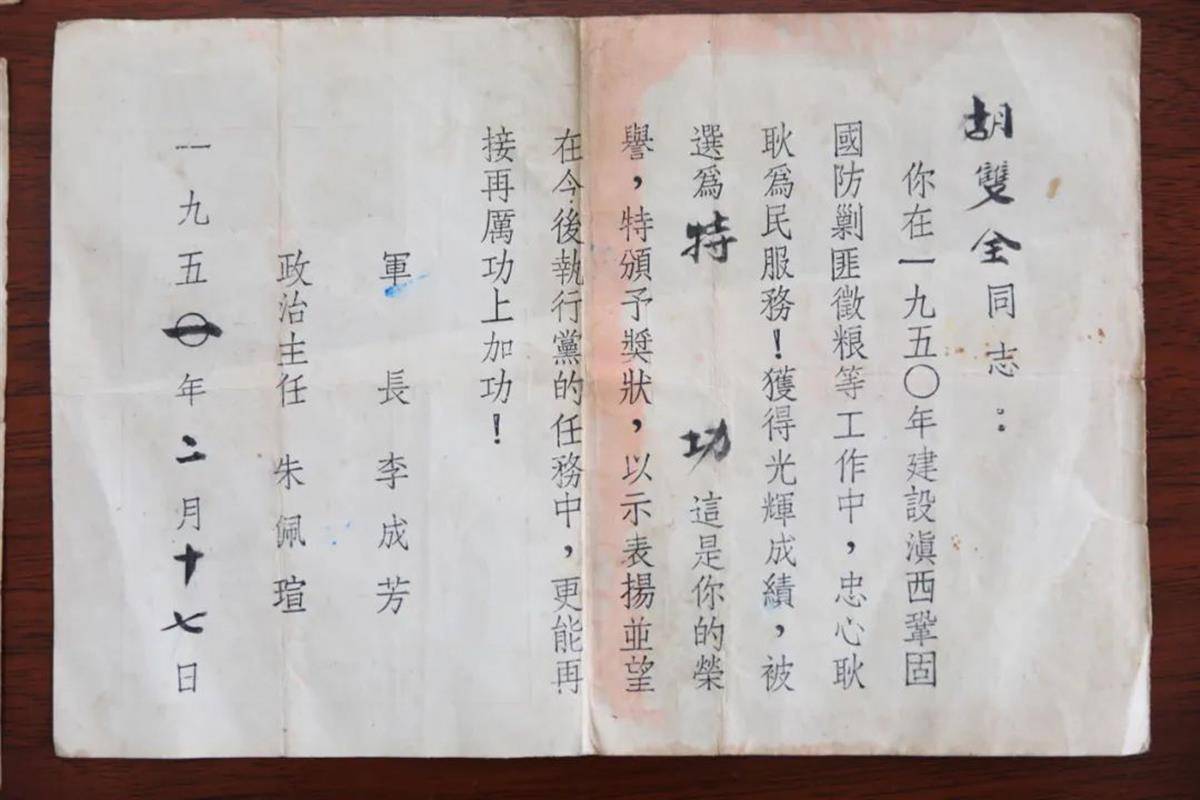 胡雙全同志：
你在一九五〇年建設滇西鞏固
國防剿匪徵粮等工作中，忠心耿
耿爲民服務！獲得光輝成績，被
選爲特功這是你的榮
譽，特頒予獎狀，以示表揚並望
在今後執行黨的任務中，更能再
接再厲功上加功！
軍長李成芳
政治主任朱佩瑄
一九五一年二月十七日